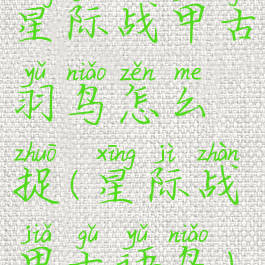 星际战甲古
yǔ niǎo zěn me
羽鸟怎么
zhuō xīng jì zhàn
捉(星际战
jiǎ gǔ yǔ niǎo
甲古语鸟)